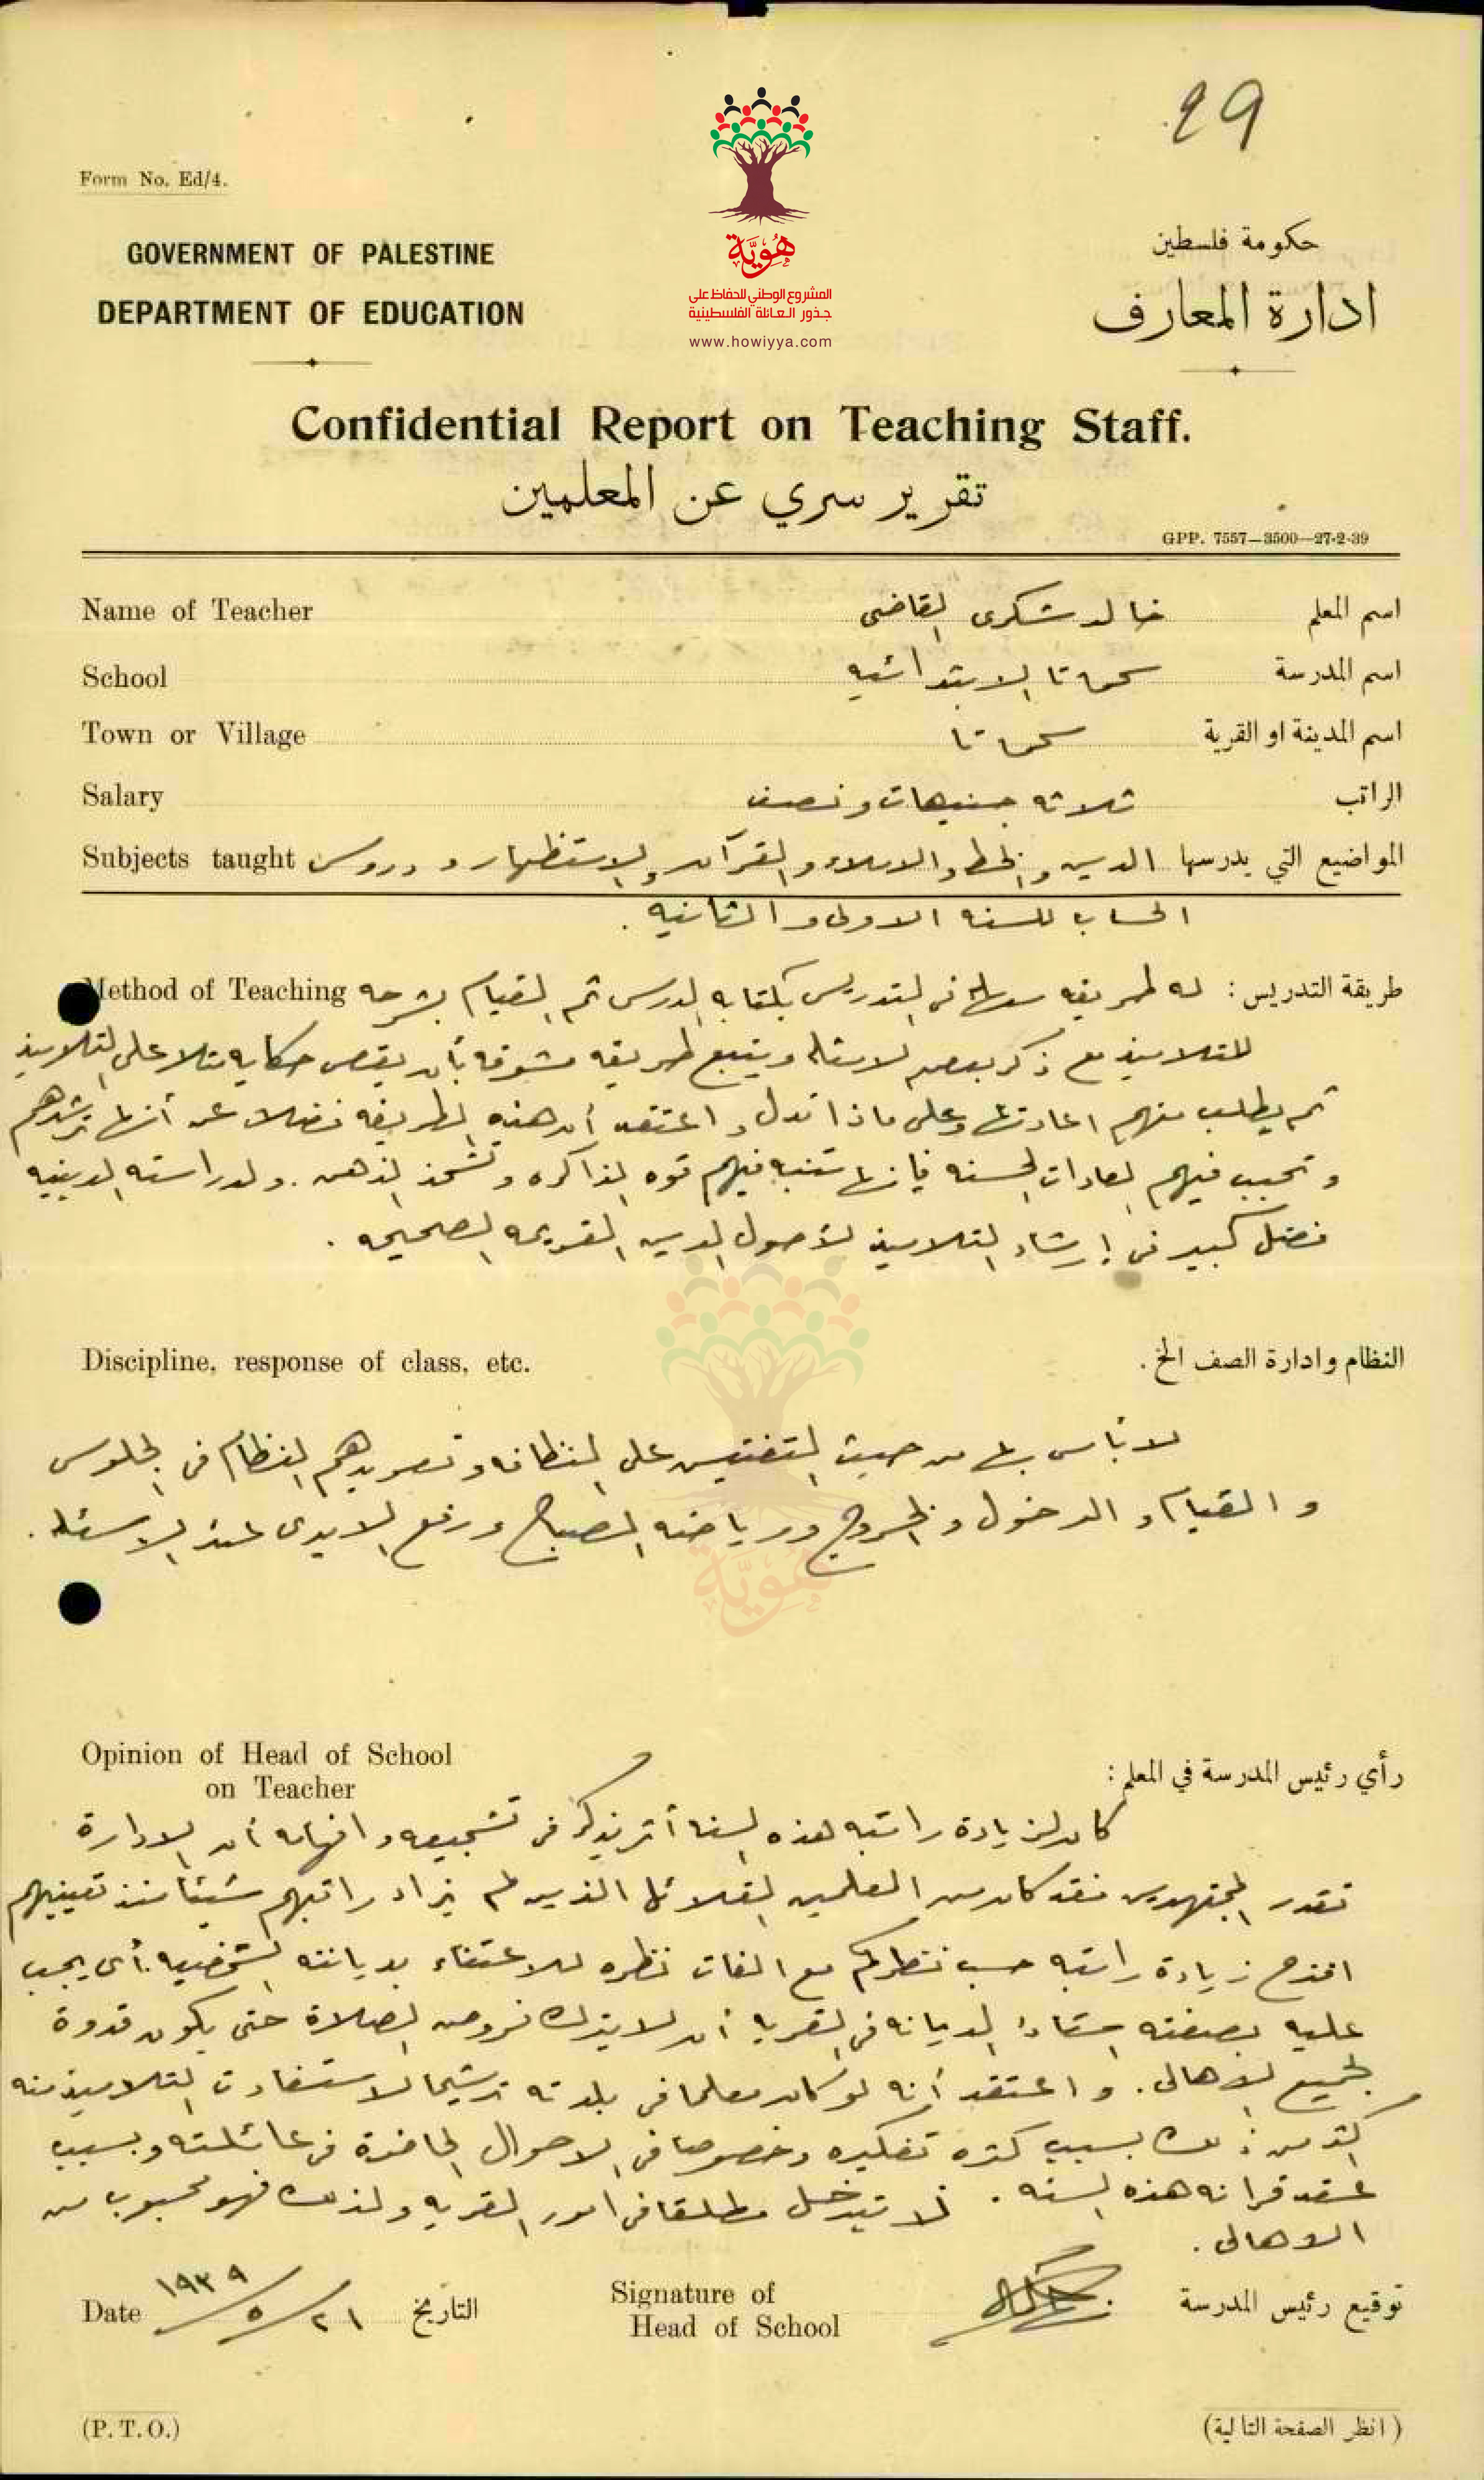 29
Form No. Ed/4.
GOVERNMENT OF PALESTINE
DEPARTMENT OF EDUCATION
هُوِيَّة
المشروع الوطني للحفاظ على
جذور العائلة الفلسطينية
www.howiyya.com
حكومة فلسطين
ادارة المعارف
Confidential Report on Teaching Staff.
تقرير سري عن المعلمين
GPP. 7557—3500—27-2-39
Name of Teacher خالد شكرى القاضى اسم المعلم
School سحماتا الابتدائيه اسم المدرسة
Town or Village سحماتا اسم المدينة او القرية
Salary ثلاثه جنيهات ونصف الراتب
Subjects taught المواضيع التي يدرسها الدين والخط والاملاء والقرآن والاستظهار ودروس
الحساب للسنه الاولى والثانيه .
Method of Teaching طريقة التدريس : له طريقه سهلة فى التدريس بكتابه الدرس ثم القيام بشرحه
للتلاميذ مع ذكر بعض الاسئلة ويتبع طريقه مشوقه بأن يقص حكايه مثلا على التلاميذ
ثم يطلب منهم اعادتها وعلى ماذا تدل واعتقد أن هذه الطريقه فضلا عن أنها ترشدهم
وتحبب فيهم العادات الحسنه فإنها ستنبه فيهم قوه الذاكره وتشحذ الذهن . ولدراسته الدينيه
فضل كبير فى إرشاد التلاميذ لأصول الدين القويمه الصحيحه .
Discipline, response of class, etc. النظام وادارة الصف الخ .
لا بأس بها من حيث التفتيش على النظافه وتعويدهم النظام فى الجلوس
والقيام والدخول والخروج ورياضه الصباح ورفع الايدى عند الاسئله .
هُوِيَّة
Opinion of Head of School
on Teacher
رأي رئيس المدرسة في المعلم :
كان لزيادة راتبه هذه السنه أثر يذكر فى تشجيعه وافهامه أن الادارة
تقدر المجتهدين فقد كان من المعلمين القلائل الذين لم يزاد راتبهم شيئا منذ تعيينهم
اقترح زيادة راتبه حسب نظركم مع الفات نظره للاعتناء بديانته الشخصيه . أى يجب
عليه بصفته استاذ الديانه فى القريه أن لا يترك فروض الصلاة حتى يكون قدوة
لجميع الاهالى . واعتقد أنه لو كان معلما فى بلدته ترشيحا لاستفادت التلاميذ منه
اكثر من ذلك بسبب كثره تفكيره وخصوصا فى الاحوال الحاضرة فى عائلته وبسبب
عقد قرانه هذه السنه . لا يتدخل مطلقا فى امور القريه ولذلك فهو محبوب من
الاهالى .
Date ٢١/٥/١٩٣٩ التاريخ
Signature of
Head of School
توقيع رئيس المدرسة
(P. T. O.) (انظر الصفحة التالية)